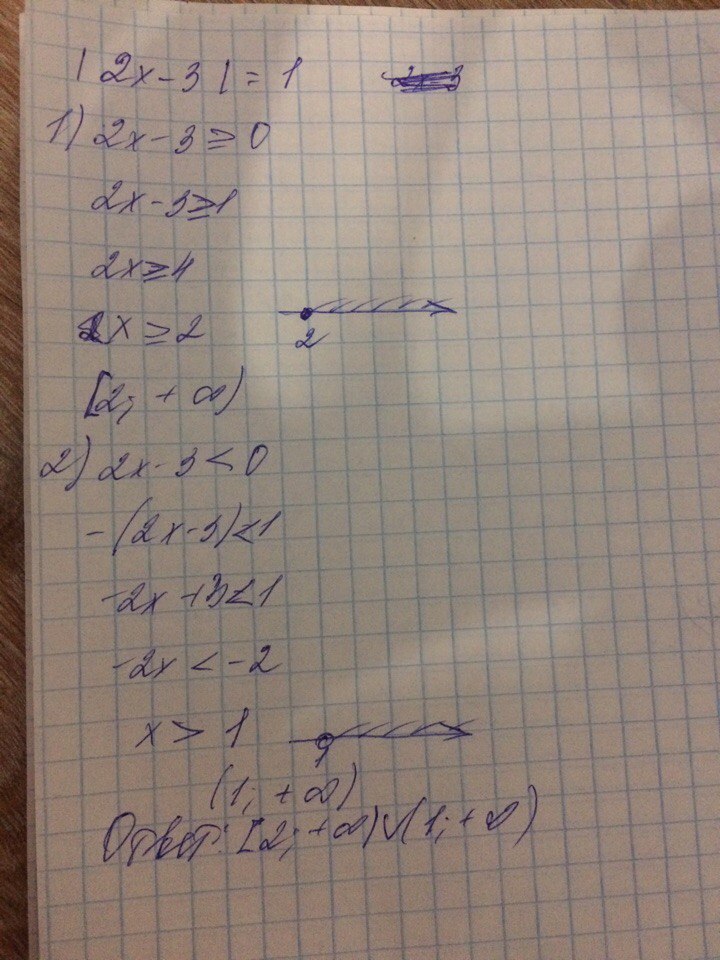 |2x-3|=1
1) 2x-3≥0
2x-3≥1
2x≥4
x≥2
2
[2; +∞)
2) 2x-3<0
-(2x-3)<1
-2x+3<1
-2x<-2
x>1
1
(1; +∞)
Ответ: [2; +∞)∪(1; +∞)